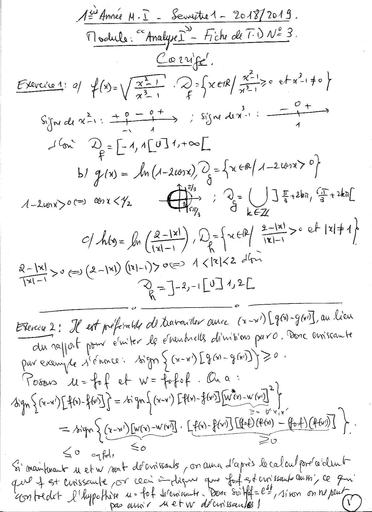 1ère Année M.I - Semestre 1 - 2018/2019.
Module: "Analyse I" - Fiche de T.D N°3.
Corrigé.
Exercice 1: a) f(x) = √((x²-1)/(x³-1)) . D_f = {x∈ℝ / (x²-1)/(x³-1) ≥ 0 et x³-1 ≠ 0}
Signe de x²-1: + 0 - 0 + ; signe de x³-1: - 0 +
-1 1 1
d'où D_f = [-1, 1[ ∪ ]1, +∞[
b) g(x) = ln(1-2cosx), D_g = {x∈ℝ / 1-2cosx > 0}
1-2cosx > 0 ⇔ cosx < 1/2 ; D_g = ⋃ ]π/3 + 2kπ, 5π/3 + 2kπ[
k∈ℤ
c) h(x) = ln((2-|x|)/(|x|-1)), D_h = {x∈ℝ / (2-|x|)/(|x|-1) > 0 et |x| ≠ 1}
(2-|x|)/(|x|-1) > 0 ⇔ (2-|x|)(|x|-1) > 0 ⇔ 1 < |x| < 2 d'où
D_h = ]-2, -1[ ∪ ]1, 2[
Exercice 2: Il est préférable de travailler avec (x-x')[g(x)-g(x')], au lieu
du rapport pour éviter les éventuelles divisions par 0. Donc croissante
par exemple s'énonce: sign{(x-x')[g(x)-g(x')]} ≥ 0.
Posons u = fof et w = fofof. On a:
sign{(x-x')[f(x)-f(x')]} = sign{(x-x')[f(x)-f(x')][w(x)-w(x')]²}
= sign{(x-x')[w(x)-w(x')] . [f(x)-f(x')][(fof)(f(x)) - (fof)(f(x'))]}
≤ 0 ≤ 0 ≥ 0
Si maintenant u et w sont décroissants, on aura d'après le calcul précédent
que f est croissante, or ceci implique que fof est croissante aussi, ce qui
contredit l'hypothèse u = fof décroissante. Donc soit f = cste, sinon on ne peut
pas avoir u et w décroissantes!
1